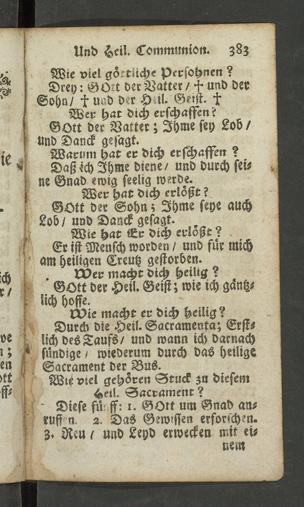 Und Heil. Communion. 383
Wie viel göttliche Persohnen?
Drey: GOtt der Vatter/ † und der
Sohn/ † und der Heil. Geist. †
Wer hat dich erschaffen?
GOtt der Vatter; Ihme sey Lob/
und Danck gesagt.
Warum hat er dich erschaffen?
Daß ich Ihme diene/ und durch sei-
ne Gnad ewig seelig werde.
Wer hat dich erlößt?
GOtt der Sohn; Ihme seye auch
Lob/ und Danck gesagt.
Wie hat Er dich erlößt?
Er ist Mensch worden/ und für mich
am heiligen Creutz gestorben.
Wer macht dich heilig?
GOtt der Heil. Geist; wie ich gäntz-
lich hoffe.
Wie macht er dich heilig?
Durch die Heil. Sacramenta; Erst-
lich des Taufs/ und wann ich darnach
sündige/ wiederum durch das heilige
Sacrament der Bus.
Wie viel gehören Stuck zu diesem
Heil. Sacrament?
Diese fünff: 1. GOtt um Gnad an-
ruffen. 2. Das Gewissen erforschen.
3. Reu/ und Leyd erwecken mit ei-
nem